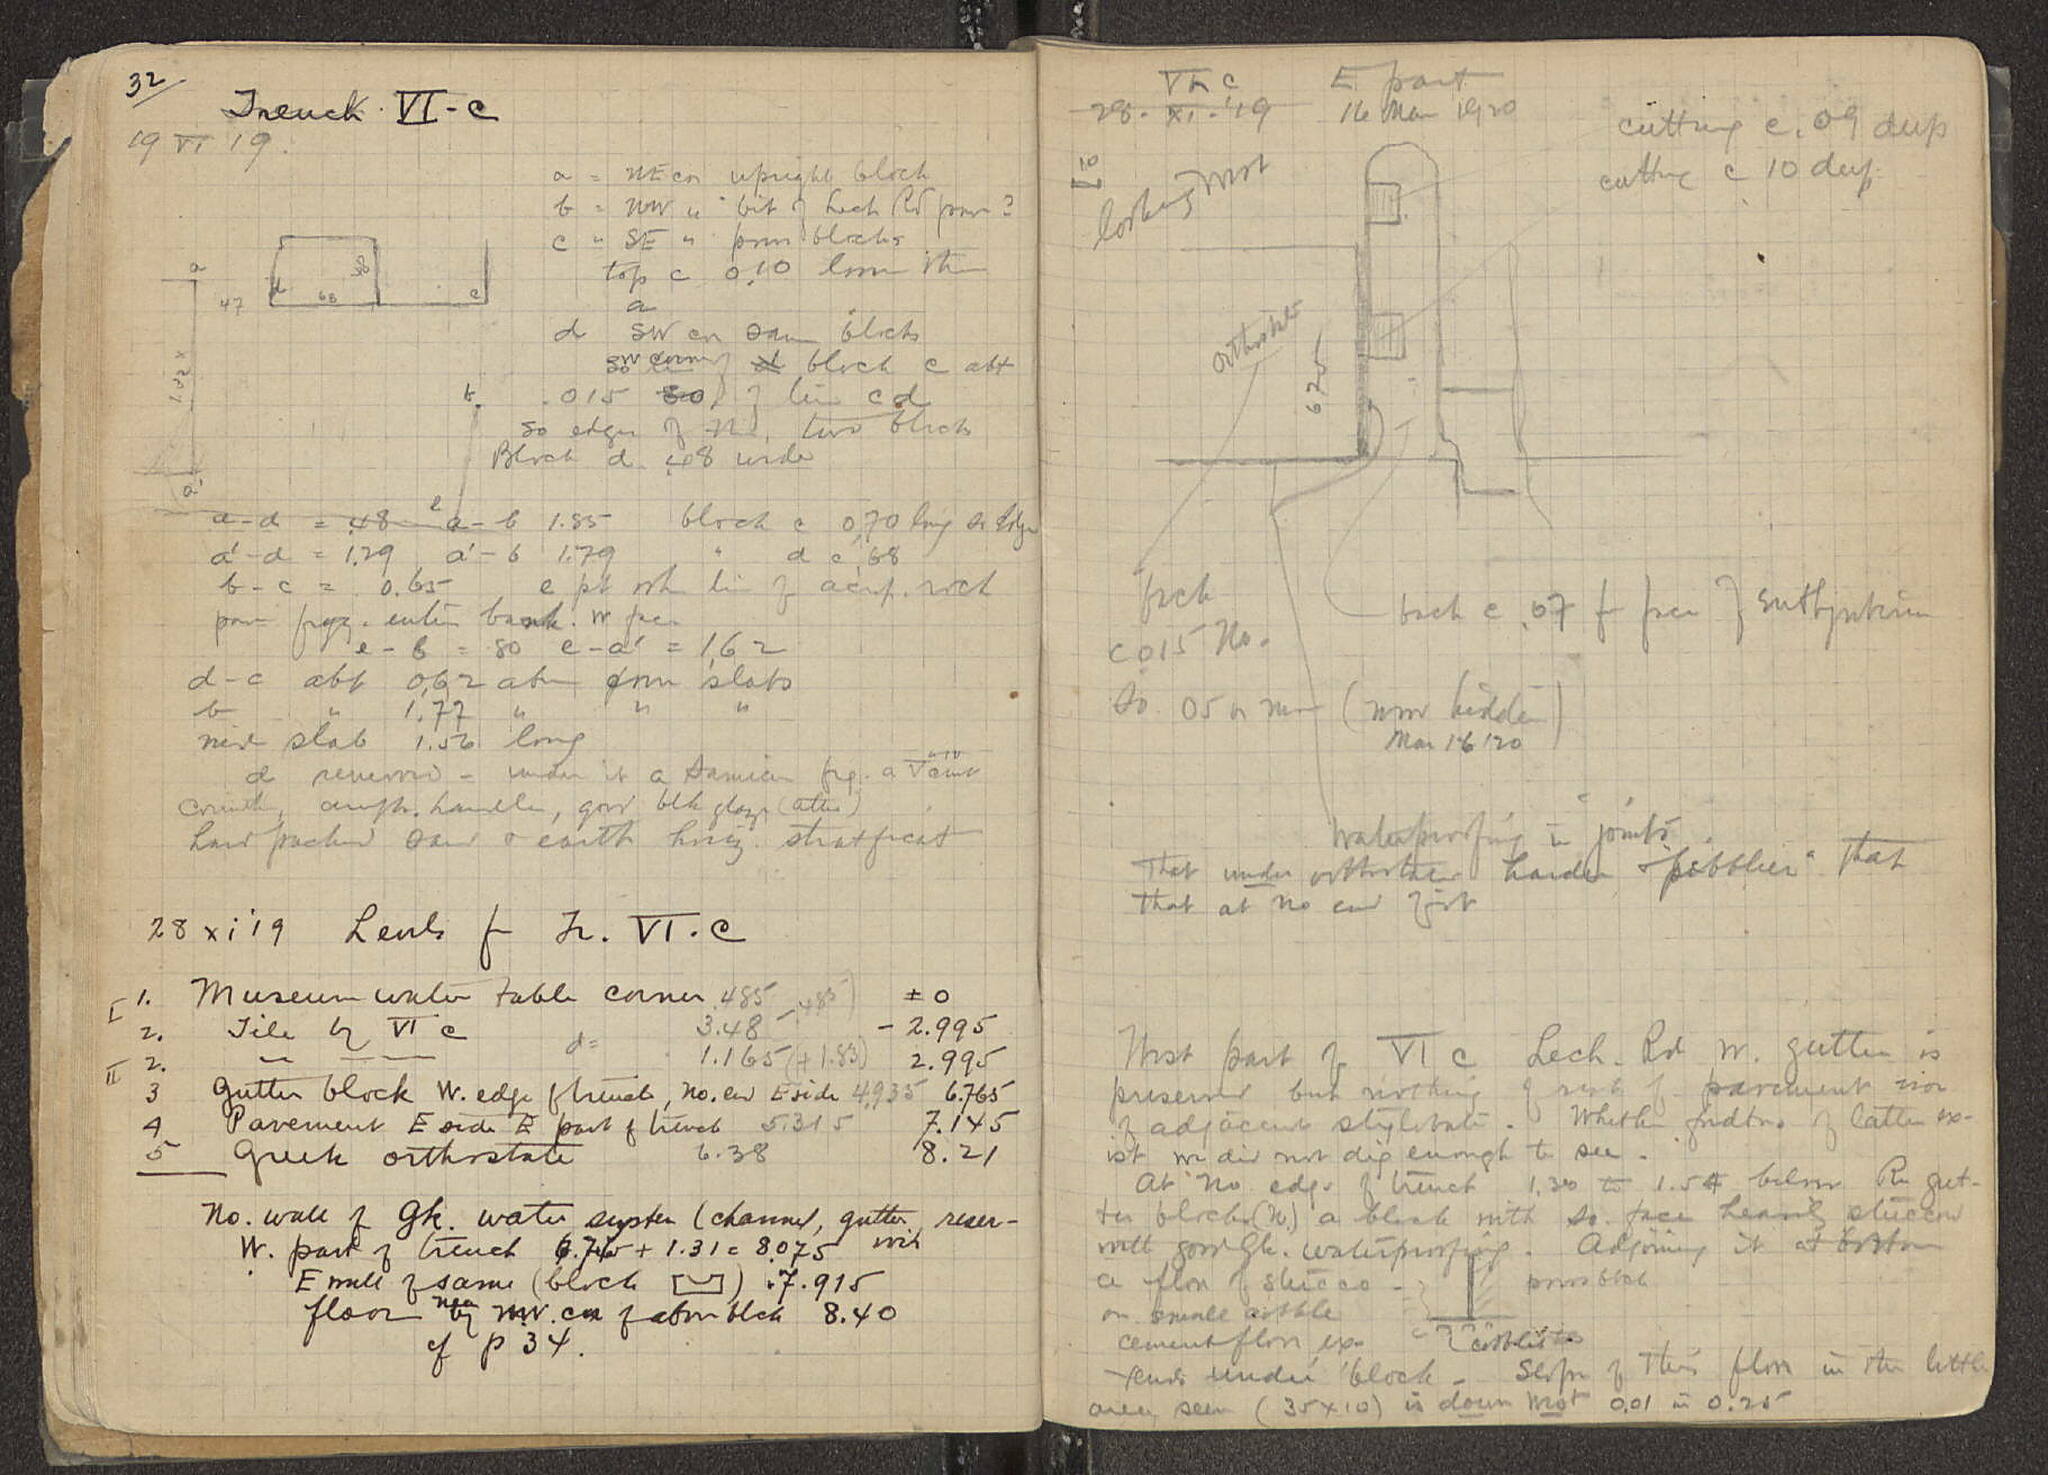 32
Trench VI-c
19 VI 19.
a = NE cor upright block
b = NW " bit of Lech Rd poros?
c " SE " poros blocks
top c 0.10 lower than
a
d SW cor same blocks
SW corner of block c abt
.015 of line cd
so edges of the two blocks
Block d .48 wide
a
d
68
58
c
47
1.32
b
a'
e
a-d = .48 a-b 1.85 block c 0.70 long So Edge
a'-d = 1.29 a'-b 1.79 " d c .68
b-c = 0.65 e pt wh line of acrop. rock
poros entire bank. W face
e-b = 80 e-a' = 1.62
d-c abt 0.62 above slabs
b " 1.77 " " "
slab 1.56 long
d removed - under it a Samian frg. a
Corinth, amph. handle, good blk glaze (attic)
hard packed sand & earth horiz. stratificat
28 xi '19 Levels for Tr. VI.C
I 1. Museum water table corner .485 (.485) ± 0
2. Tile by VI c d= 3.48 - 2.995
II 2. " — — 1.165 (+1.83) 2.995
3 Gutter block W. edge of trench, No. end E side 4.935 6.765
4 Pavement E side E part of trench 5.315 7.145
5 Greek orthostate 6.38 8.21
No. wall of Gk. water system (channel, gutter, reser-
W. part of trench 6.765 + 1.31 = 8.075 voir
E wall of same (block ) 7.915
floor near NW. cor of above block 8.40
cf p 34.
VI c E part
28. XI. '19 16 Mar 1920
cutting c. 09 deep
cutting c 10 deep
looking West
orthostate
.625
back
c 015 No.
So. 05 or more (now hidden)
Mar 16 '20
back c .07 fr face of euthynteria
Waterproofing in joints.
That under orthostate harder & "pebblier" than
that at no end joint
West part of VI c Lech. Rd W. gutter is
preserved but nothing of rest of pavement nor
of adjacent stylobate. Whether fndtns of latter ex-
ist we did not dig enough to see.
At No. edge of trench 1.30 to 1.54 below Rd gut-
ter blocks (W.) a block with So. face heavily stuccoed
with good Gk. waterproofing. Adjoining it at bottom
a floor of stucco - poros block
on small cobble
cement floor ex- cobbles
tends under block. Slope of this floor in the little
area seen (35x10) is down West 0.01 in 0.25